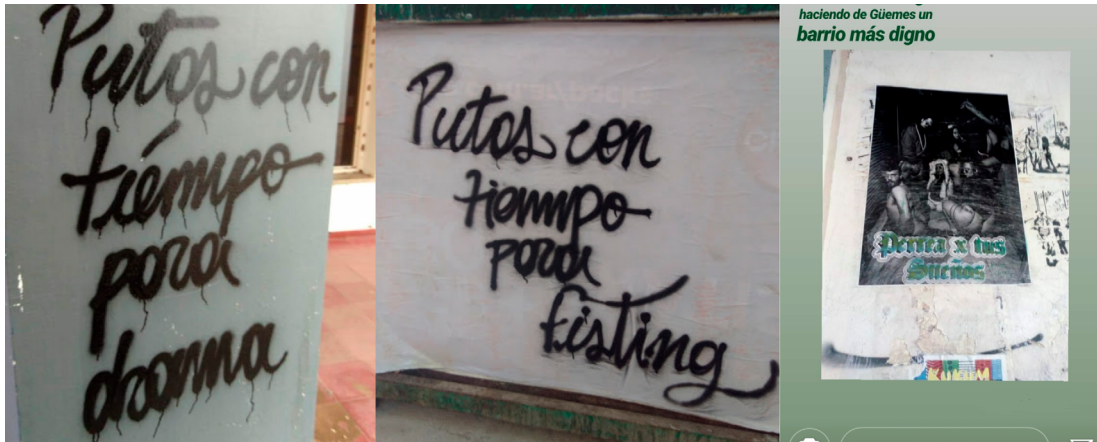 Putos con
tiempo
para
drama
Putos con
tiempo
para
fisting
haciendo de Güemes un
barrio más digno
Perrea x tus
Sueños
KUKUM